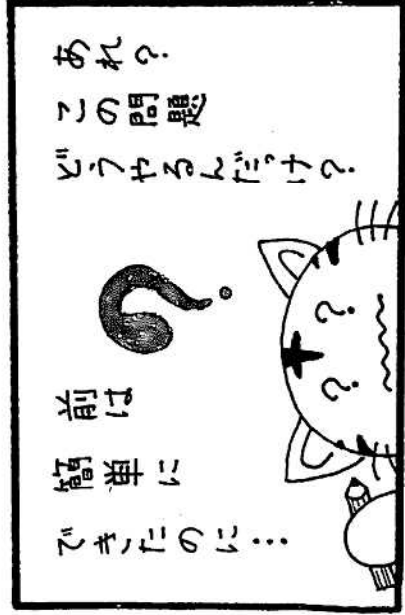 あれ?
この問題
どうやるんだっけ?
?
前は
簡単に
できたのに…
? ?